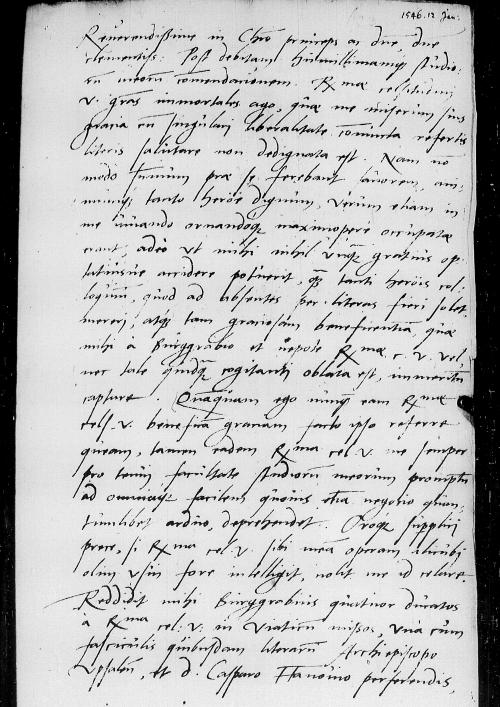 1546. 12 Jan:
Reverendissime in Chro princeps ac dne, dne
clementiss: Post debitam humillimamq studio-
rū meorū cōmendationem. Rmae celsitudini
v. gras immortales ago, quae me miserum suis
gratia cū singulari liberalitate cōiuncta refertis
literis salutare non dedignata est. Nam nō
modo summum prae se ferebant favorem, ani-
mumq tanto heroe dignum, verum etiam in
me iuvando ornandoq maximopere occupatae
erant, adeo ut mihi nihil unq gratius op-
tatiusve accidere potuerit, q tanti herois col-
loquium, quod ad absentes per literas fieri solet
mereri, atq tam gratiosam beneficentiam, quae
mihi a Burggrabio et nepote Rmae c. v. vel
nec tale quidq cogitanti oblata est, immeritū
capture. Quamquam ego nunq eam Rmae
cels. v. beneficā gratiam facto ipso referre
queam, tamen eadem Rma cel. v. me semper
pro tenui facultate studiorū meorum promptū
ad omniaq facilem quovis etiā negotio quan-
tumlibet arduo, deprehendet. Oroq supplici
prece, si Rma cel. v. sibi meā operam alicubi
olim usui fore intelligit, nolit me id celare
Reddidit mihi Burggrabius quatuor ducatos
a Rma cel. v. in viaticū missos, una cum
fasciculis quibusdam literarū Archiepiscopo
Upsalen, et d. Casparo Hanovio perferendis,